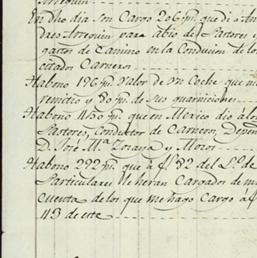 Arrequin
En dho dia son Cargo 206 ps. que di a An
dres Arrequin para abio de Pastores y
gastos de Camino en la Conducion de los
citados Carneros
Habono 196 ps. Valor de Un Coche que me
remitio y 80 ps. de sus guarniciones
Habono 1150 ps. que en Mexico dio a los
Pastores, Conductor de Carneros, Depen
D. José Ma. Zorana y Moros
Habono 292 ps. que a f. 82 del L. de
Particulares le heran Cargados de mi
cuenta de los que me hago Cargo a f.
113 de este